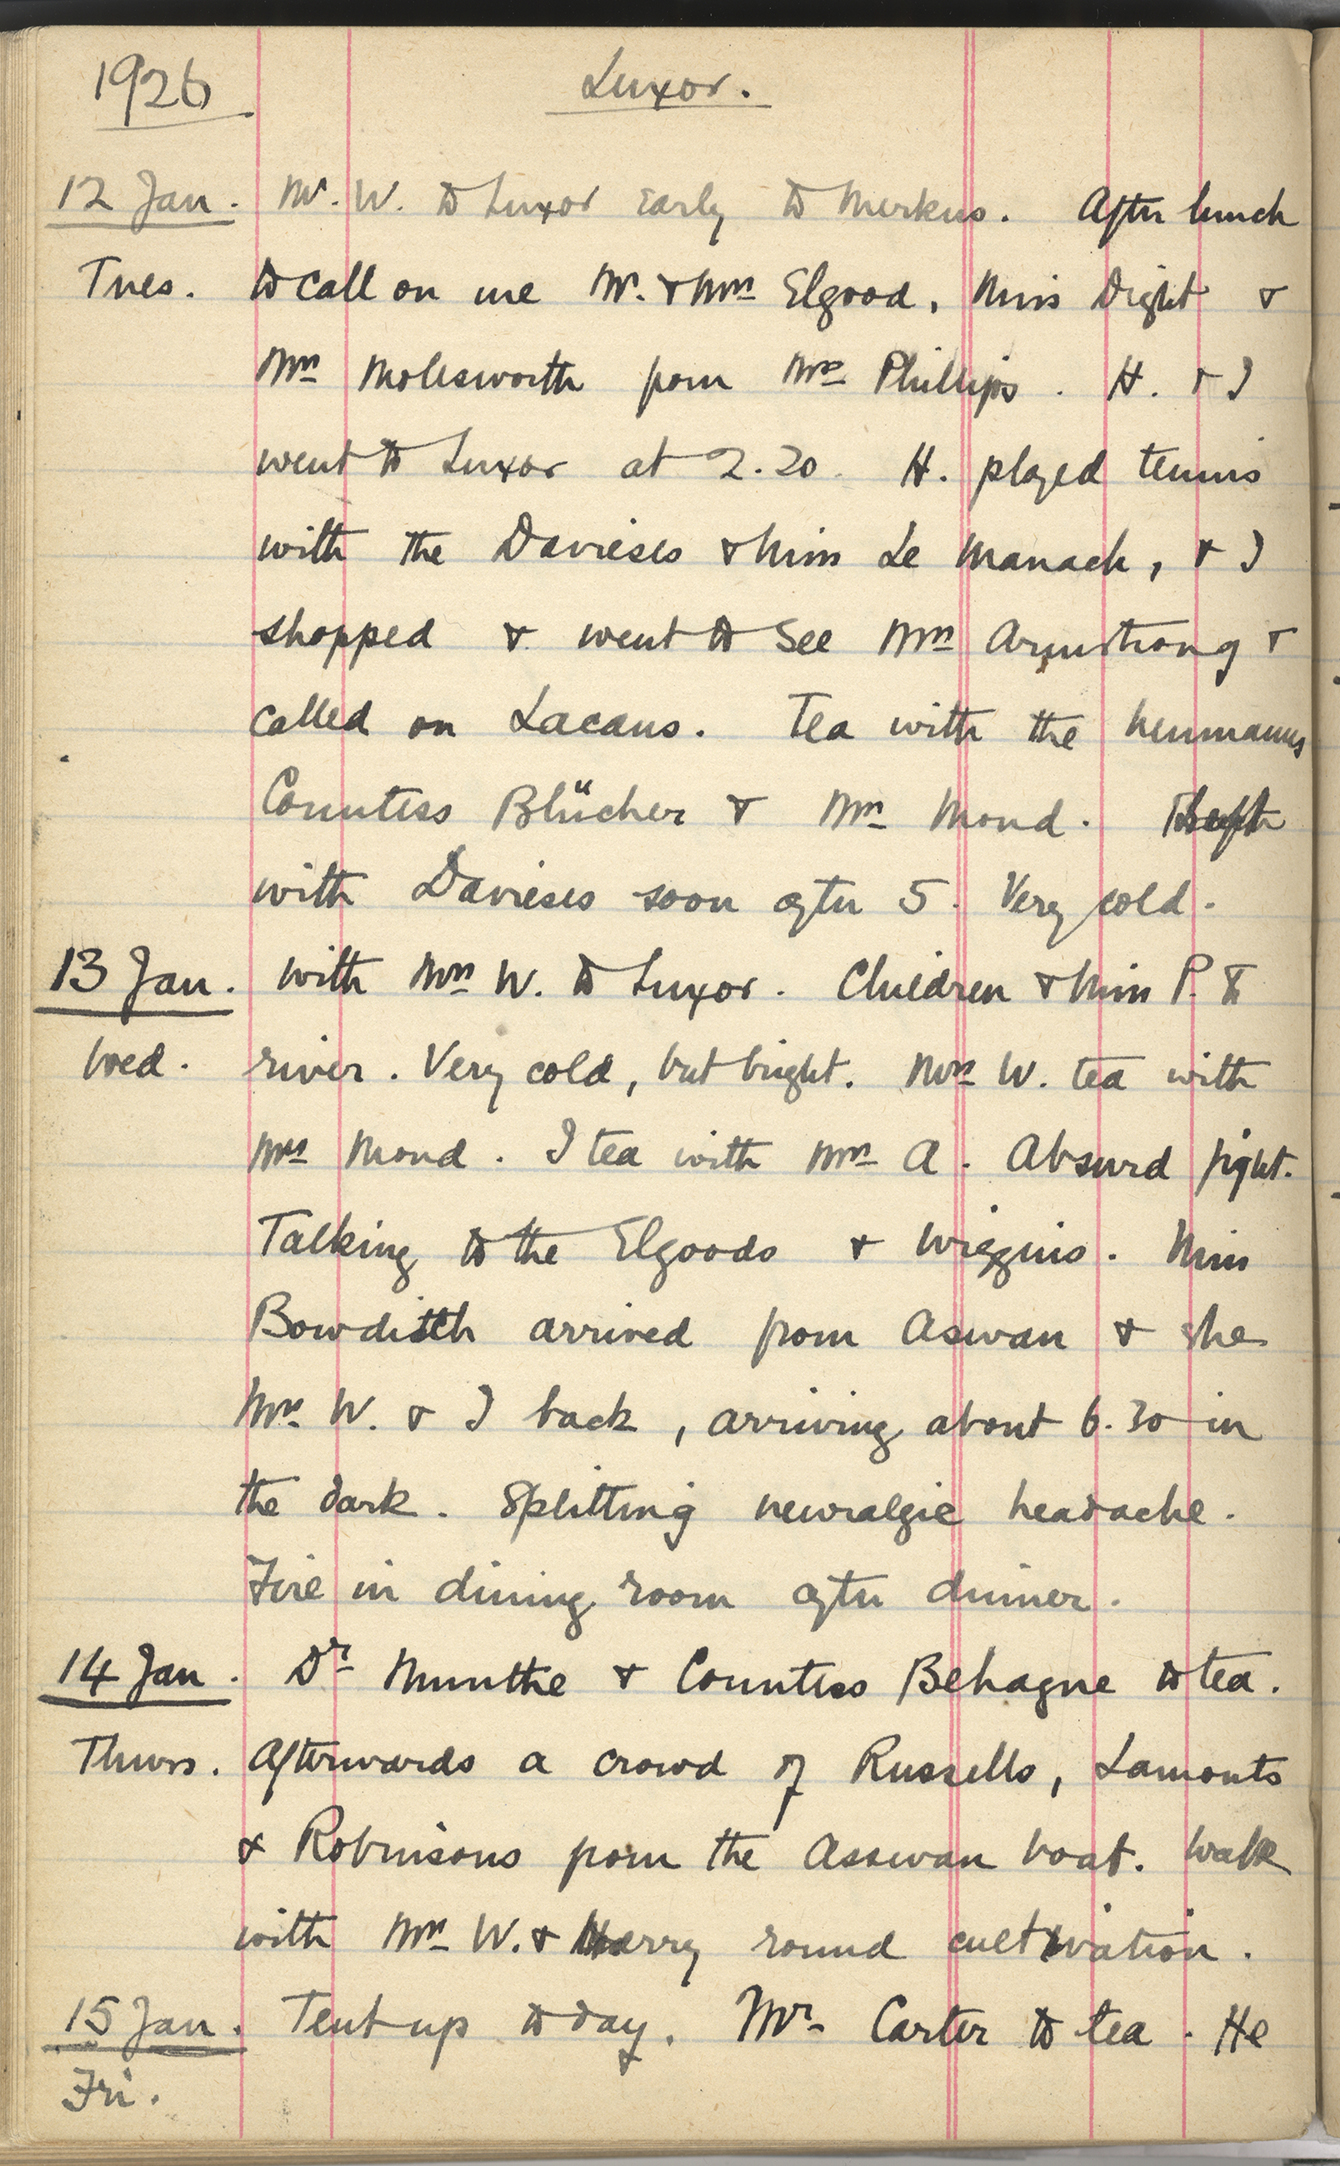 1926 Luxor.
12 Jan. Mr. W. to Luxor early to Merkus. After lunch
Tues. to call on me Mr. & Mrs Elgood, Miss Dight &
Mrs Molesworth from Mrs Phillips. H. & I
went to Luxor at 2.20. H. played tennis
with the Davieses & Miss Le Manach, & I
shopped & went to see Mrs Armstrong &
called on Lacaus. Tea with the
Countess Blücher & Mrs Mond.
with Davieses soon after 5. Very cold.
13 Jan. With Mrs W. to Luxor. Children & Miss P. to
Wed. river. Very cold, but bright. Mrs W. tea with
Mrs Mond. I tea with Mrs A. Absurd fight.
Talking to the Elgoods & Wiggins. Miss
Bowditch arrived from Aswan & she
Mrs W. & I back, arriving about 6.30 in
the dark. Splitting neuralgic headache.
Fire in dining room after dinner.
14 Jan. Dr Munthe & Countess Behague to tea.
Thurs. Afterwards a crowd of Russells, Lamonts
& Robinsons from the Asswan boat. Walk
with Mrs W. & Harry round cultivation.
15 Jan. Tent up today. Mr. Carter to tea. He
Fri.